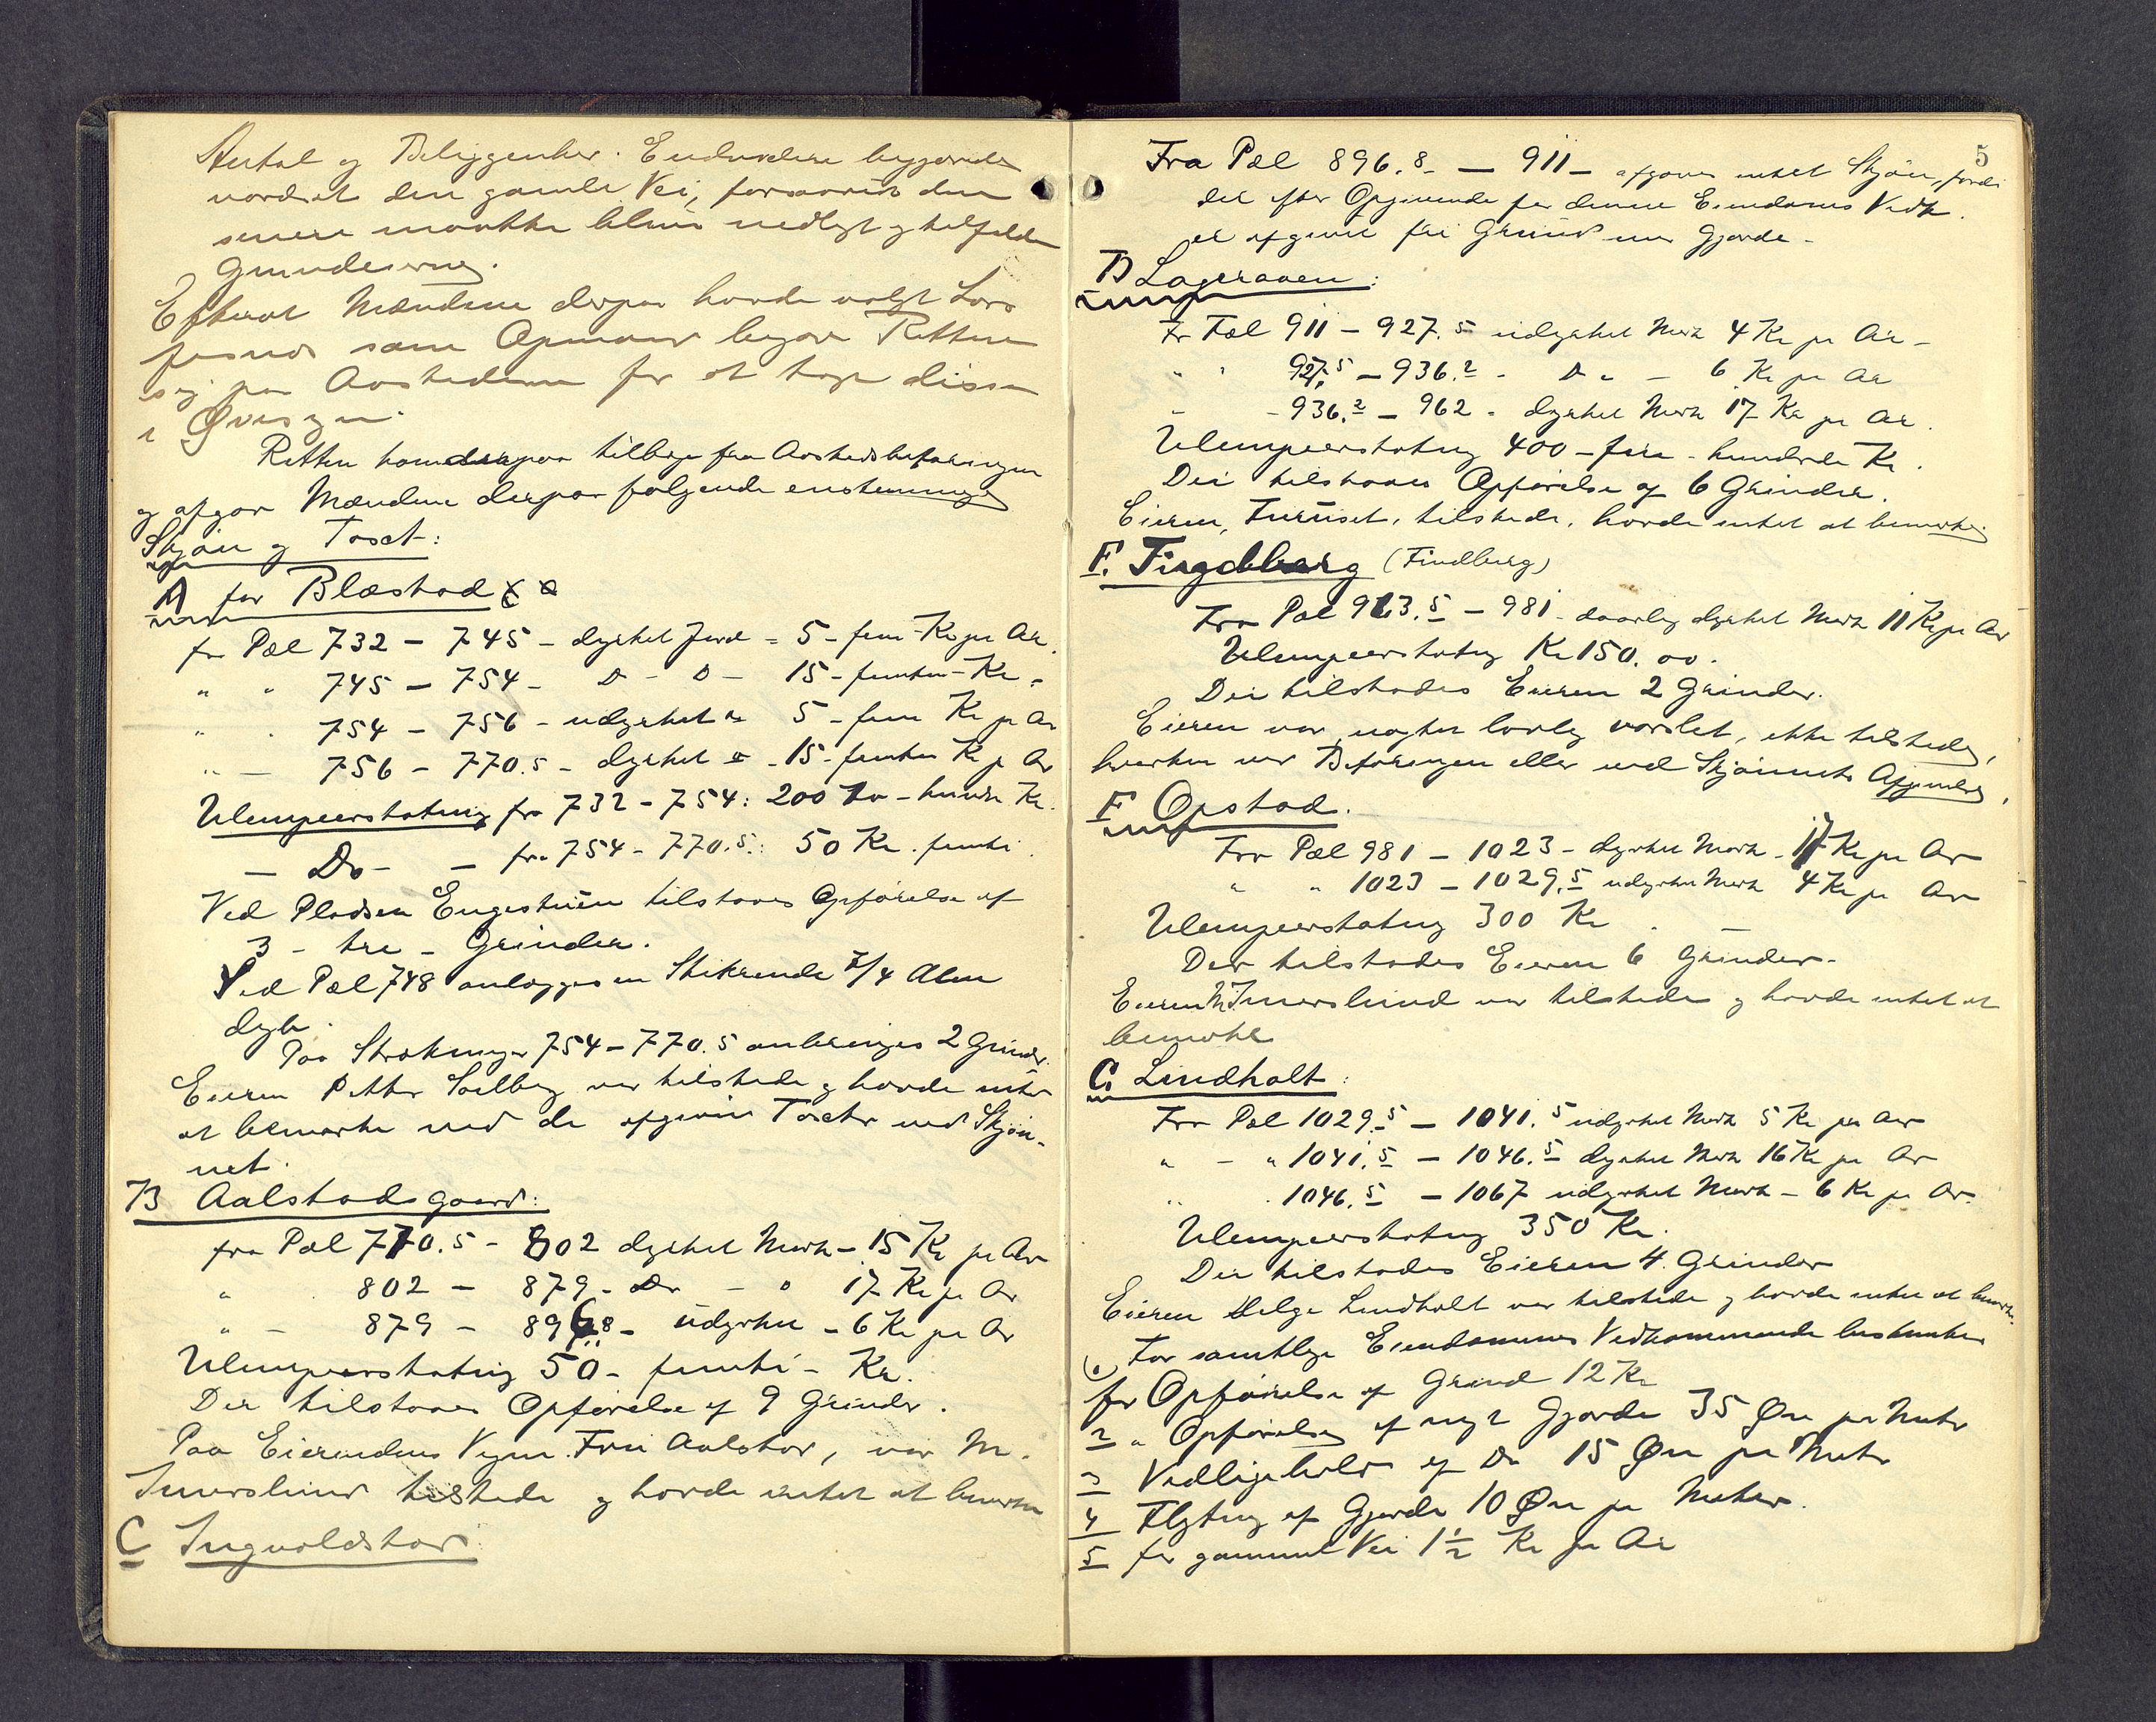 Antal og Beliggenhed. Endvidere begjærede
vordsat den gamle Vei, forsaavidt den
senere maatte blive nedlagt og tilfalde
Grundeierne.
Efterat Mændene derpaa havde valgt Lars
som Opmand begav Retten
sig paa Aastederne for at tage disse
i Øiesyn.
Retten kom derpaa tilbage fra Aastedsbefaringen
og afgav Mændene derpaa følgende enstemmige
Skjøn og Taxt:
A for Blæstad
fra Pæl 732 - 745 - dyrket Jord = 5 - fem - Kr pr Ar.
" " 745 - 754 - D - o - 15 - femten - Kr "
" " 754 - 756 - udyrket " 5 - fem Kr pr Ar
" - 756 - 770.5 - dyrket " - 15 - femten Kr pr Ar
Ulempeerstatning fra 732 - 754: 200 To - hundre Kr.
- Do - - fra 754 - 770.5: 50 Kr. femti.
Ved Pladsen Engestuen tilstaaes Opførelse af
3 - tre - Grinder.
Ved Pæl 748 anlægges en Stikrende 7/4 Alen
dyb.
Paa Strækningen 754 - 770.5 anbringes 2 Grinder.
Eieren Petter Solberg var tilstede og havde intet
at bemærke ved de afgivne Taxter ved Skjøn-
net.
B Aalstadsgaard:
fra Pæl 770.5 - 802 dyrket Mark - 15 Kr pr Ar
" 802 - 879 - Do - " 17 Kr pr Ar
" - 879 - 896.8 - udyrket - 6 Kr pr Ar
Ulempeerstatning 50 - femti - Kr.
Der tilstaaes Opførelse af 9 Grinder.
Paa Eierindens Vegne. Fru Aalstad, var M.
Imerslund tilstede og havde intet at bemærke
C Ingvaldstad
5
Fra Pæl 896.8 - 911 - afgaves intet Skjøn, fordi
det efter Opgivende for denne Eiendoms Vedk.
er afgivet fri Grund med Gjærde -
D Lageraaen:
Fr Pæl 911 - 927.5 udyrket Mark 4 Kr pr Ar -
" " 927.5 - 936.2 - D " - 6 Kr pr Ar
" - 936.2 - 962 - dyrket Mark 17 Kr pr Ar.
Ulempeerstatning 400 - fire - hundrede Kr.
Der tilstaaes Opførelse af 6 Grinder.
Eieren, Furuset, tilstede, havde intet at bemærke.
E. Fingdberg (Findberg)
Fra Pæl 963.5 - 981 - daarlig dyrket Mark 11 Kr pr Ar
Ulempeerstatning Kr 150.00.
Der tilstodes Eieren 2 Grinder.
Eieren var, uagtet lovlig varslet, ikke tilstede,
hverken ved Befaringen eller ved Skjønnets Afgivelse.
F Opstad.
Fra Pæl 981 - 1023 - dyrket Mark - 17 Kr pr Ar
" " 1023 - 1029.5 udyrket Mark 4 Kr pr Ar
Ulempeerstatning 300 Kr.
Der tilstodes Eieren 6 Grinder.
Eieren M. Imerslund var tilstede og havde intet at
bemærke
G. Lindholt:
Fra Pæl 1029.5 - 1041.5 udyrket Mark 5 Kr pr Ar
" - " 1041.5 - 1046.5 dyrket Mark 16 Kr pr Ar
" . 1046.5 - 1067 udyrket Mark - 6 Kr pr Ar.
Ulempeerstatning 350 Kr.
Der tilstodes Eieren 4 Grinder
Eieren Helge Lindholt var tilstede og havde intet at bemærke.
For samtlige Eiendommes Vedkommende bestemtes
for Opførelse af Grind 12 Kr
2 " Opførelse af nyt Gjærde 35 Øre pr Meter
3 Vedligehold af Do 15 Øre pr Meter
4 Flytning af Gjærde 10 Øre pr Meter.
5 for gammel Vei 1 1/2 Kr pr Ar